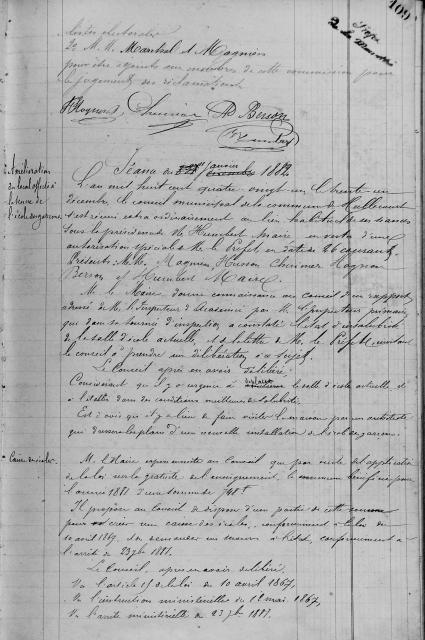 109
listes électorales
2° M. M. Marchal et Magnien
pour être adjoints aux membres de cette commission pour
le jugement des réclamations.
Magnien
Berson
Humbert
Amélioration
du local affecté à
la tenue de
l'école des garçons
Séance du janvier 1882
L'an mil huit cent quatre-vingt-un le trente un
décembre, le conseil municipal de la commune de
s'est réuni extraordinairement au lieu habituel de ses séances
sous la présidence de M. Humbert Maire en vertu d'une
autorisation spéciale de M. le Préfet en date du 26 courant.
Présents M.M. Magnien, Husson, Chenimer, Hognon
Berson et Humbert Maire.
M. le Maire donne connaissance au conseil d'un rapport
adressé de M. l'Inspecteur d'Académie par M. l'Inspecteur primaire
qui dans sa tournée d'inspection a constaté l'état d'insalubrité
de la salle d'école actuelle, et la lettre de M. le Préfet invitant
le conseil à prendre une délibération à ce sujet.
Le Conseil après en avoir délibéré,
Considérant qu'il y a urgence à déplacer la salle d'école actuelle et
à l'établir dans des conditions meilleures de salubrité.
Est d'avis qu'il y a lieu de faire visiter la maison par un architecte
qui dressera les plans d'une nouvelle installation de l'école des garçons.
Caisse des écoles.
M. le Maire expose ensuite au Conseil que par suite de l'application
de la loi sur la gratuité de l'enseignement, la commune bénéficie pour
l'année 1881 d'une somme de
Il propose au Conseil de disposer d'un partie de cette somme
pour créer une caisse des écoles, conformément à la loi du
10 avril 1867, et de demander un secours à l'état, conformément à
l'arrêté du 23 7bre 1881.
Le Conseil, après en avoir délibéré,
Vu l'article 15 de la loi du 10 avril 1867,
Vu l'instruction ministérielle du 12 mai 1867,
Vu l'arrêté ministériel du 23 7bre 1881.